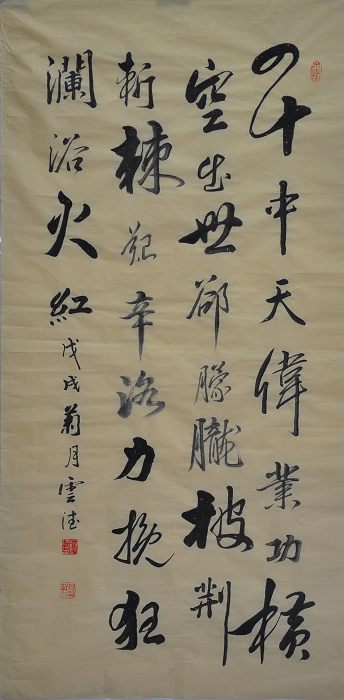 四十中天偉業功横
空出世卻朦朧披荆
斬棘艱辛路力挽狂
瀾浴火紅戊戌菊月雲